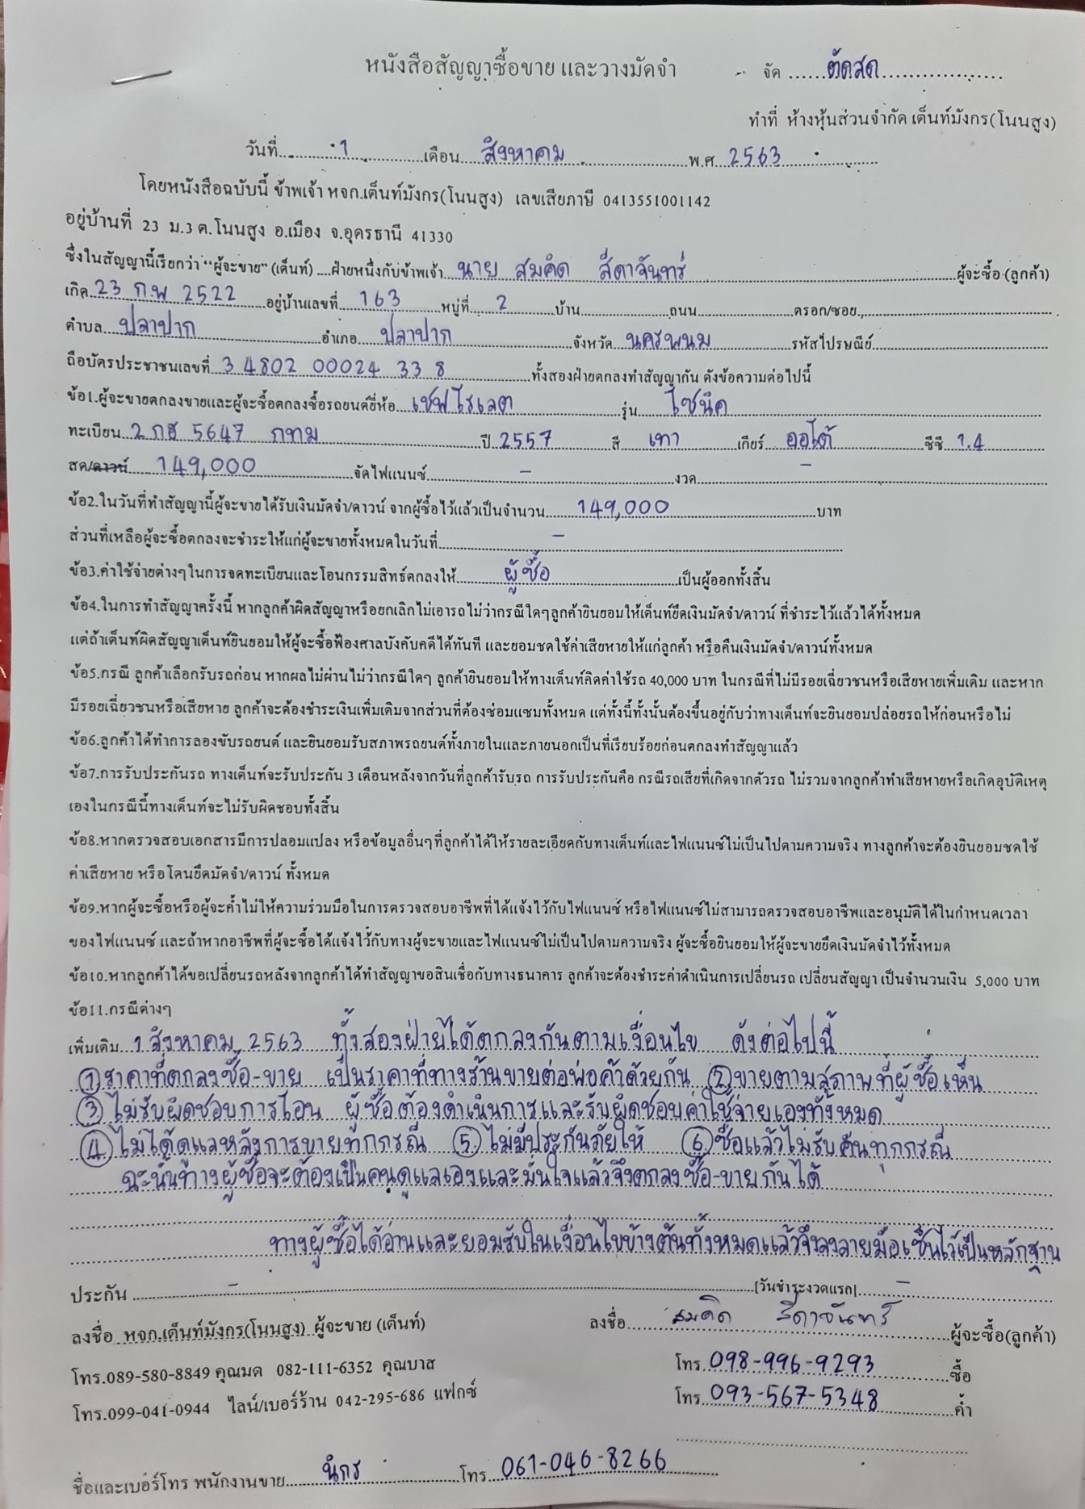 หนังสือสัญญาซื้อขาย และวางมัดจำ
จัด ตัดสด
ทำที่ ห้างหุ้นส่วนจำกัด เต็นท์มังกร(โนนสูง)
วันที่ 1 เดือน สิงหาคม พ.ศ 2563
โดยหนังสือฉบับนี้ ข้าพเจ้า หจก.เต็นท์มังกร(โนนสูง) เลขเสียภาษี 0413551001142
อยู่บ้านที่ 23 ม.3 ต.โนนสูง อ.เมือง จ.อุดรธานี 41330
ซึ่งในสัญญานี้เรียกว่า "ผู้จะขาย" (เต็นท์) ....ฝ่ายหนึ่งกับข้าพเจ้า นาย สมคิด สีดาจันทร์ ผู้จะซื้อ (ลูกค้า)
เกิด 23 ก.พ 2522 อยู่บ้านเลขที่ 163 หมู่ที่ 2 บ้าน ถนน ตรอก/ซอย
ตำบล ปลาปาก อำเภอ ปลาปาก จังหวัด นครพนม รหัสไปรษณีย์
ถือบัตรประชาชนเลขที่ 3 4802 00024 33 8 ทั้งสองฝ่ายตกลงทำสัญญากัน ดังข้อความต่อไปนี้
ข้อ1.ผู้จะขายตกลงขายและผู้จะซื้อตกลงซื้อรถยนต์ยี่ห้อ เชฟโรเลต รุ่น โซนิค
ทะเบียน 2 กฮ 5647 กทม ปี 2557 สี เทา เกียร์ ออโต้ ซีซี 1.4
สด/ดาวน์ 149,000 จัดไฟแนนซ์ - งวด -
ข้อ2.ในวันที่ทำสัญญานี้ผู้จะขายได้รับเงินมัดจำ/ดาวน์ จากผู้ซื้อไว้แล้วเป็นจำนวน 149,000 บาท
ส่วนที่เหลือผู้จะซื้อตกลงจะชำระให้แก่ผู้จะขายทั้งหมดในวันที่ -
ข้อ3.ค่าใช้จ่ายต่างๆในการจดทะเบียนและโอนกรรมสิทธ์ตกลงให้ ผู้ซื้อ เป็นผู้ออกทั้งสิ้น
ข้อ4.ในการทำสัญญาครั้งนี้ หากลูกค้าผิดสัญญาหรือยกเลิกไม่เอารถไม่ว่ากรณีใดๆลูกค้ายินยอมให้เต็นท์ยึดเงินมัดจำ/ดาวน์ ที่ชำระไว้แล้วได้ทั้งหมด
แต่ถ้าเต็นท์ผิดสัญญาเต็นท์ยินยอมให้ผู้จะซื้อฟ้องศาลบังคับคดีได้ทันที และยอมชดใช้ค่าเสียหายให้แก่ลูกค้า หรือคืนเงินมัดจำ/ดาวน์ทั้งหมด
ข้อ5.กรณี ลูกค้าเลือกรับรถก่อน หากผลไม่ผ่านไม่ว่ากรณีใดๆ ลูกค้ายินยอมให้ทางเต็นท์คิดค่าใช้รถ 40,000 บาท ในกรณีที่ไม่มีรอยเฉี่ยวชนหรือเสียหายเพิ่มเติม และหาก
มีรอยเฉี่ยวชนหรือเสียหาย ลูกค้าจะต้องชำระเงินเพิ่มเติมจากส่วนที่ต้องซ่อมแซมทั้งหมด แต่ทั้งนี้ทั้งนั้นต้องขึ้นอยู่กับว่าทางเต็นท์จะยินยอมปล่อยรถให้ก่อนหรือไม่
ข้อ6.ลูกค้าได้ทำการลองขับรถยนต์ และยินยอมรับสภาพรถยนต์ทั้งภายในและภายนอกเป็นที่เรียบร้อยก่อนตกลงทำสัญญาแล้ว
ข้อ7.การรับประกันรถ ทางเต็นท์จะรับประกัน 3 เดือนหลังจากวันที่ลูกค้ารับรถ การรับประกันคือ กรณีรถเสียที่เกิดจากตัวรถ ไม่รวมจากลูกค้าทำเสียหายหรือเกิดอุบัติเหตุ
เองในกรณีนี้ทางเต็นท์จะไม่รับผิดชอบทั้งสิ้น
ข้อ8.หากตรวจสอบเอกสารมีการปลอมแปลง หรือข้อมูลอื่นๆที่ลูกค้าได้ให้รายละเอียดกับทางเต็นท์และไฟแนนซ์ไม่เป็นไปตามความจริง ทางลูกค้าจะต้องยินยอมชดใช้
ค่าเสียหาย หรือโดนยึดมัดจำ/ดาวน์ ทั้งหมด
ข้อ9.หากผู้จะซื้อหรือผู้จะค้ำไม่ให้ความร่วมมือในการตรวจสอบอาชีพที่ได้แจ้งไว้กับไฟแนนซ์ หรือไฟแนนซ์ไม่สามารถตรวจสอบอาชีพและอนุมัติได้ในกำหนดเวลา
ของไฟแนนซ์ และถ้าหากอาชีพที่ผู้จะซื้อได้แจ้งไว้กับทางผู้จะขายและไฟแนนซ์ไม่เป็นไปตามความจริง ผู้จะซื้อยินยอมให้ผู้จะขายยึดเงินมัดจำไว้ทั้งหมด
ข้อ10.หากลูกค้าได้ขอเปลี่ยนรถหลังจากลูกค้าได้ทำสัญญาขอสินเชื่อกับทางธนาคาร ลูกค้าจะต้องชำระค่าดำเนินการเปลี่ยนรถ เปลี่ยนสัญญา เป็นจำนวนเงิน 5,000 บาท
ข้อ11.กรณีต่างๆ
เพิ่มเติม 1 สิงหาคม 2563 ทั้งสองฝ่ายได้ตกลงกันตามเงื่อนไข ดังต่อไปนี้
① ราคาที่ตกลงซื้อ-ขาย เป็นราคาที่ทางร้านขายต่อพ่อค้าด้วยกัน ② ขายตามสภาพที่ผู้ซื้อเห็น
③ ไม่รับผิดชอบการโอน ผู้ซื้อต้องดำเนินการและรับผิดชอบค่าใช้จ่ายเองทั้งหมด
④ ไม่ได้ดูแลหลังการขายทุกกรณี ⑤ ไม่มีประกันภัยให้ ⑥ ซื้อแล้วไม่รับคืนทุกกรณี
ฉะนั้นทางผู้ซื้อจะต้องเป็นคนดูแลเองและมั่นใจแล้วจึงตกลงซื้อ-ขายกันได้
ทางผู้ซื้อได้อ่านและยอมรับในเงื่อนไขข้างต้นทั้งหมดแล้วจึงลงลายมือเซ็นไว้เป็นหลักฐาน
ประกัน - [วันชำระงวดแรก] -
ลงชื่อ หจก.เต็นท์มังกร(โนนสูง) ผู้จะขาย (เต็นท์) ลงชื่อ สมคิด สีดาจันทร์ ผู้จะซื้อ(ลูกค้า)
โทร.089-580-8849 คุณมด 082-111-6352 คุณบาส โทร. 098-996-9293 ซื้อ
โทร.099-041-0944 ไลน์/เบอร์ร้าน 042-295-686 แฟกซ์ โทร. 093-567-5348 ค้ำ
ชื่อและเบอร์โทร พนักงานขาย นิกร โทร 061-046-8266